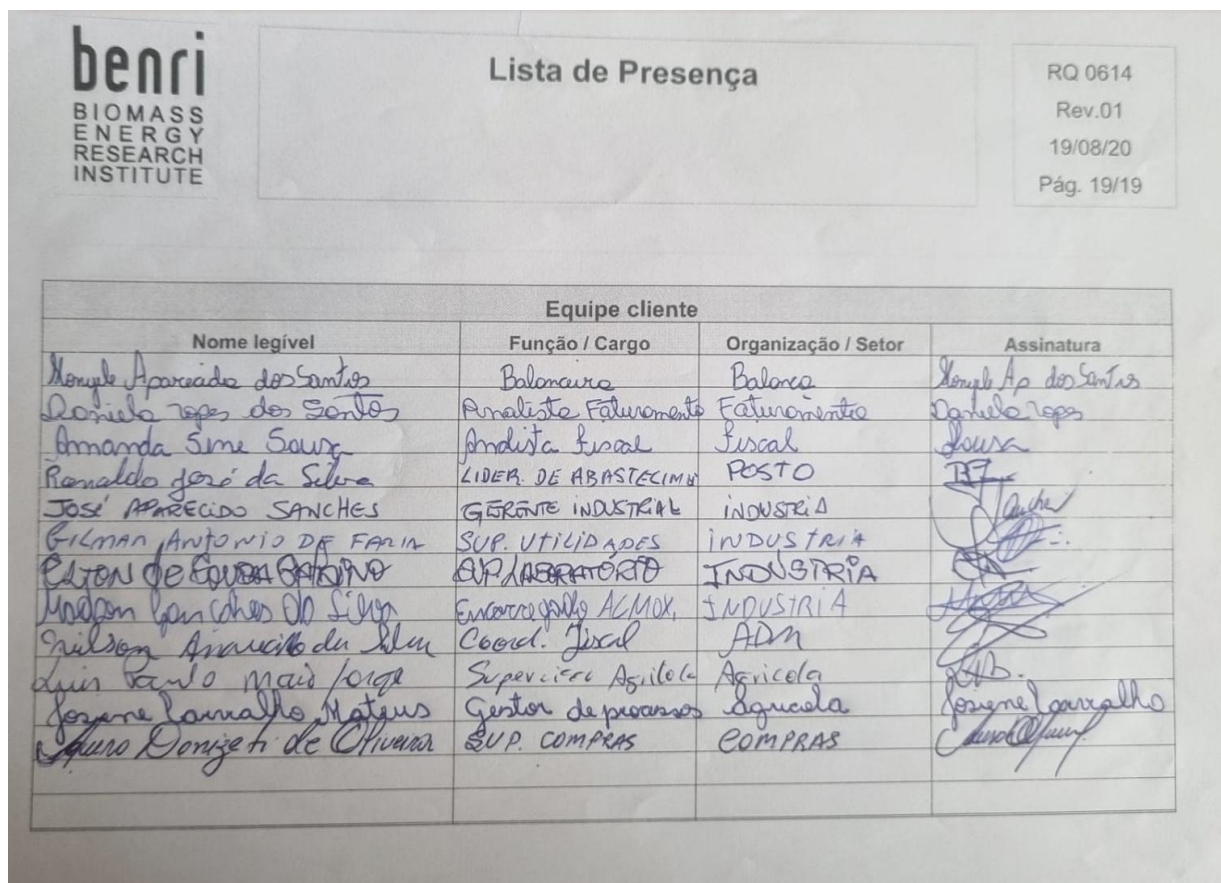 benri
BIOMASS
ENERGY
RESEARCH
INSTITUTE
Lista de Presença
RQ 0614
Rev.01
19/08/20
Pág. 19/19
Equipe cliente
Nome legível Função / Cargo Organização / Setor Assinatura
Aparecida dos Santos Balanceira Balança Ap dos Santos
Daniela Lopes dos Santos Analista Faturamento Faturamento Daniela Lopes
Amanda Sousa Analista Fiscal Fiscal Sousa
Ronaldo José da Silva LIDER DE POSTO
JOSÉ APARECIDO SANCHES GERENTE INDUSTRIAL INDUSTRIA
GILMAR ANTONIO DE FARIA SUP. UTILIDADES INDUSTRIA
DE SUP LABORATÓRIO INDUSTRIA
da Silva ALMOX. INDUSTRIA
da Silva Coord. Fiscal ADM
Luis Paulo Jorge Agricola Agricola
Josyene Carvalho Mateus Gestor de processos Agricola Josyene Carvalho
Donizeti de Oliveira SUP. COMPRAS COMPRAS